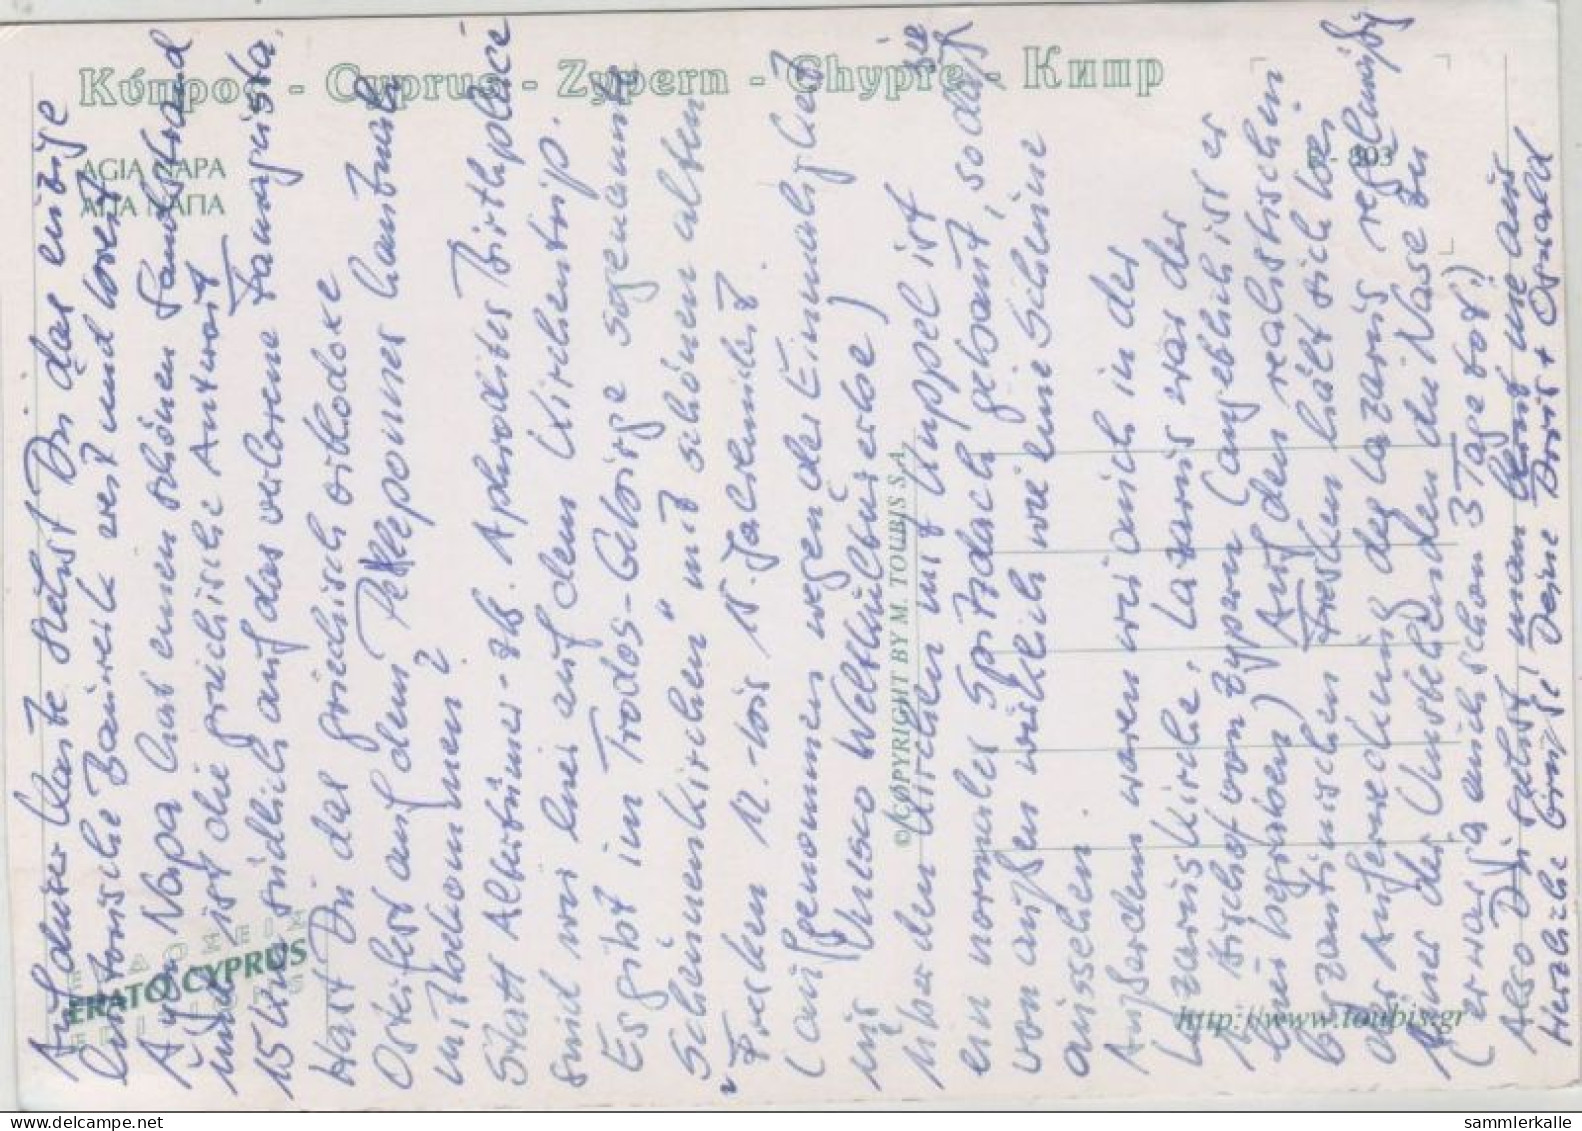 Κύπρος - Cyprus - Zypern - Chypre - Кипр
AGIA NAPA
ΑΓΙΑ ΝΑΠΑ
R - 803
ERATO CYPRUS
EDITIONS
© COPYRIGHT BY M. TOUBIS S.A.
http://www.toubis.gr
Auf dieser Karte siehst Du das einzige
historische Bauwerk weit und breit.
Ayia Napa hat einen schönen Sandstrand
und ist die griechische Antwort
15 km südlich auf das verlorene Famagusta.
Hast Du das griechisch orthodoxe
Osterfest auf dem Peleponnes hautnah
mitbekommen?
Statt Altertümer - z.B. Aphrodites Birthplace
sind wir hier auf dem Kirchentrip.
Es gibt im Trodos-Gebirge sogenannte
"Scheunenkirchen" mit schönen alten
Fresken 12. bis 15. Jahrhundert.
(aufgenommen wegen der Einmaligkeit
ins Unesco Weltkulturerbe)
Über den Kirchen mit Kuppel ist
ein normales Spitzdach gebaut, so daß sie
von außen wirklich wie eine Scheune
aussehen.
Außerdem waren wir auch in der
Lazaruskirche. Lazarus war der
1. Bischof von Zypern (angeblich ist er
hier begraben) Auf den realistischen
byzantinischen Fresken hält sich bei
der Auferweckung des Lazarus regelmäßig
einer der Umstehenden die Nase zu
(er war ja auch schon 3 Tage tot!)
Also Du siehst, man lernt nie aus
Herzliche Grüße! Deine Doris + Oswald
sammlerkalle